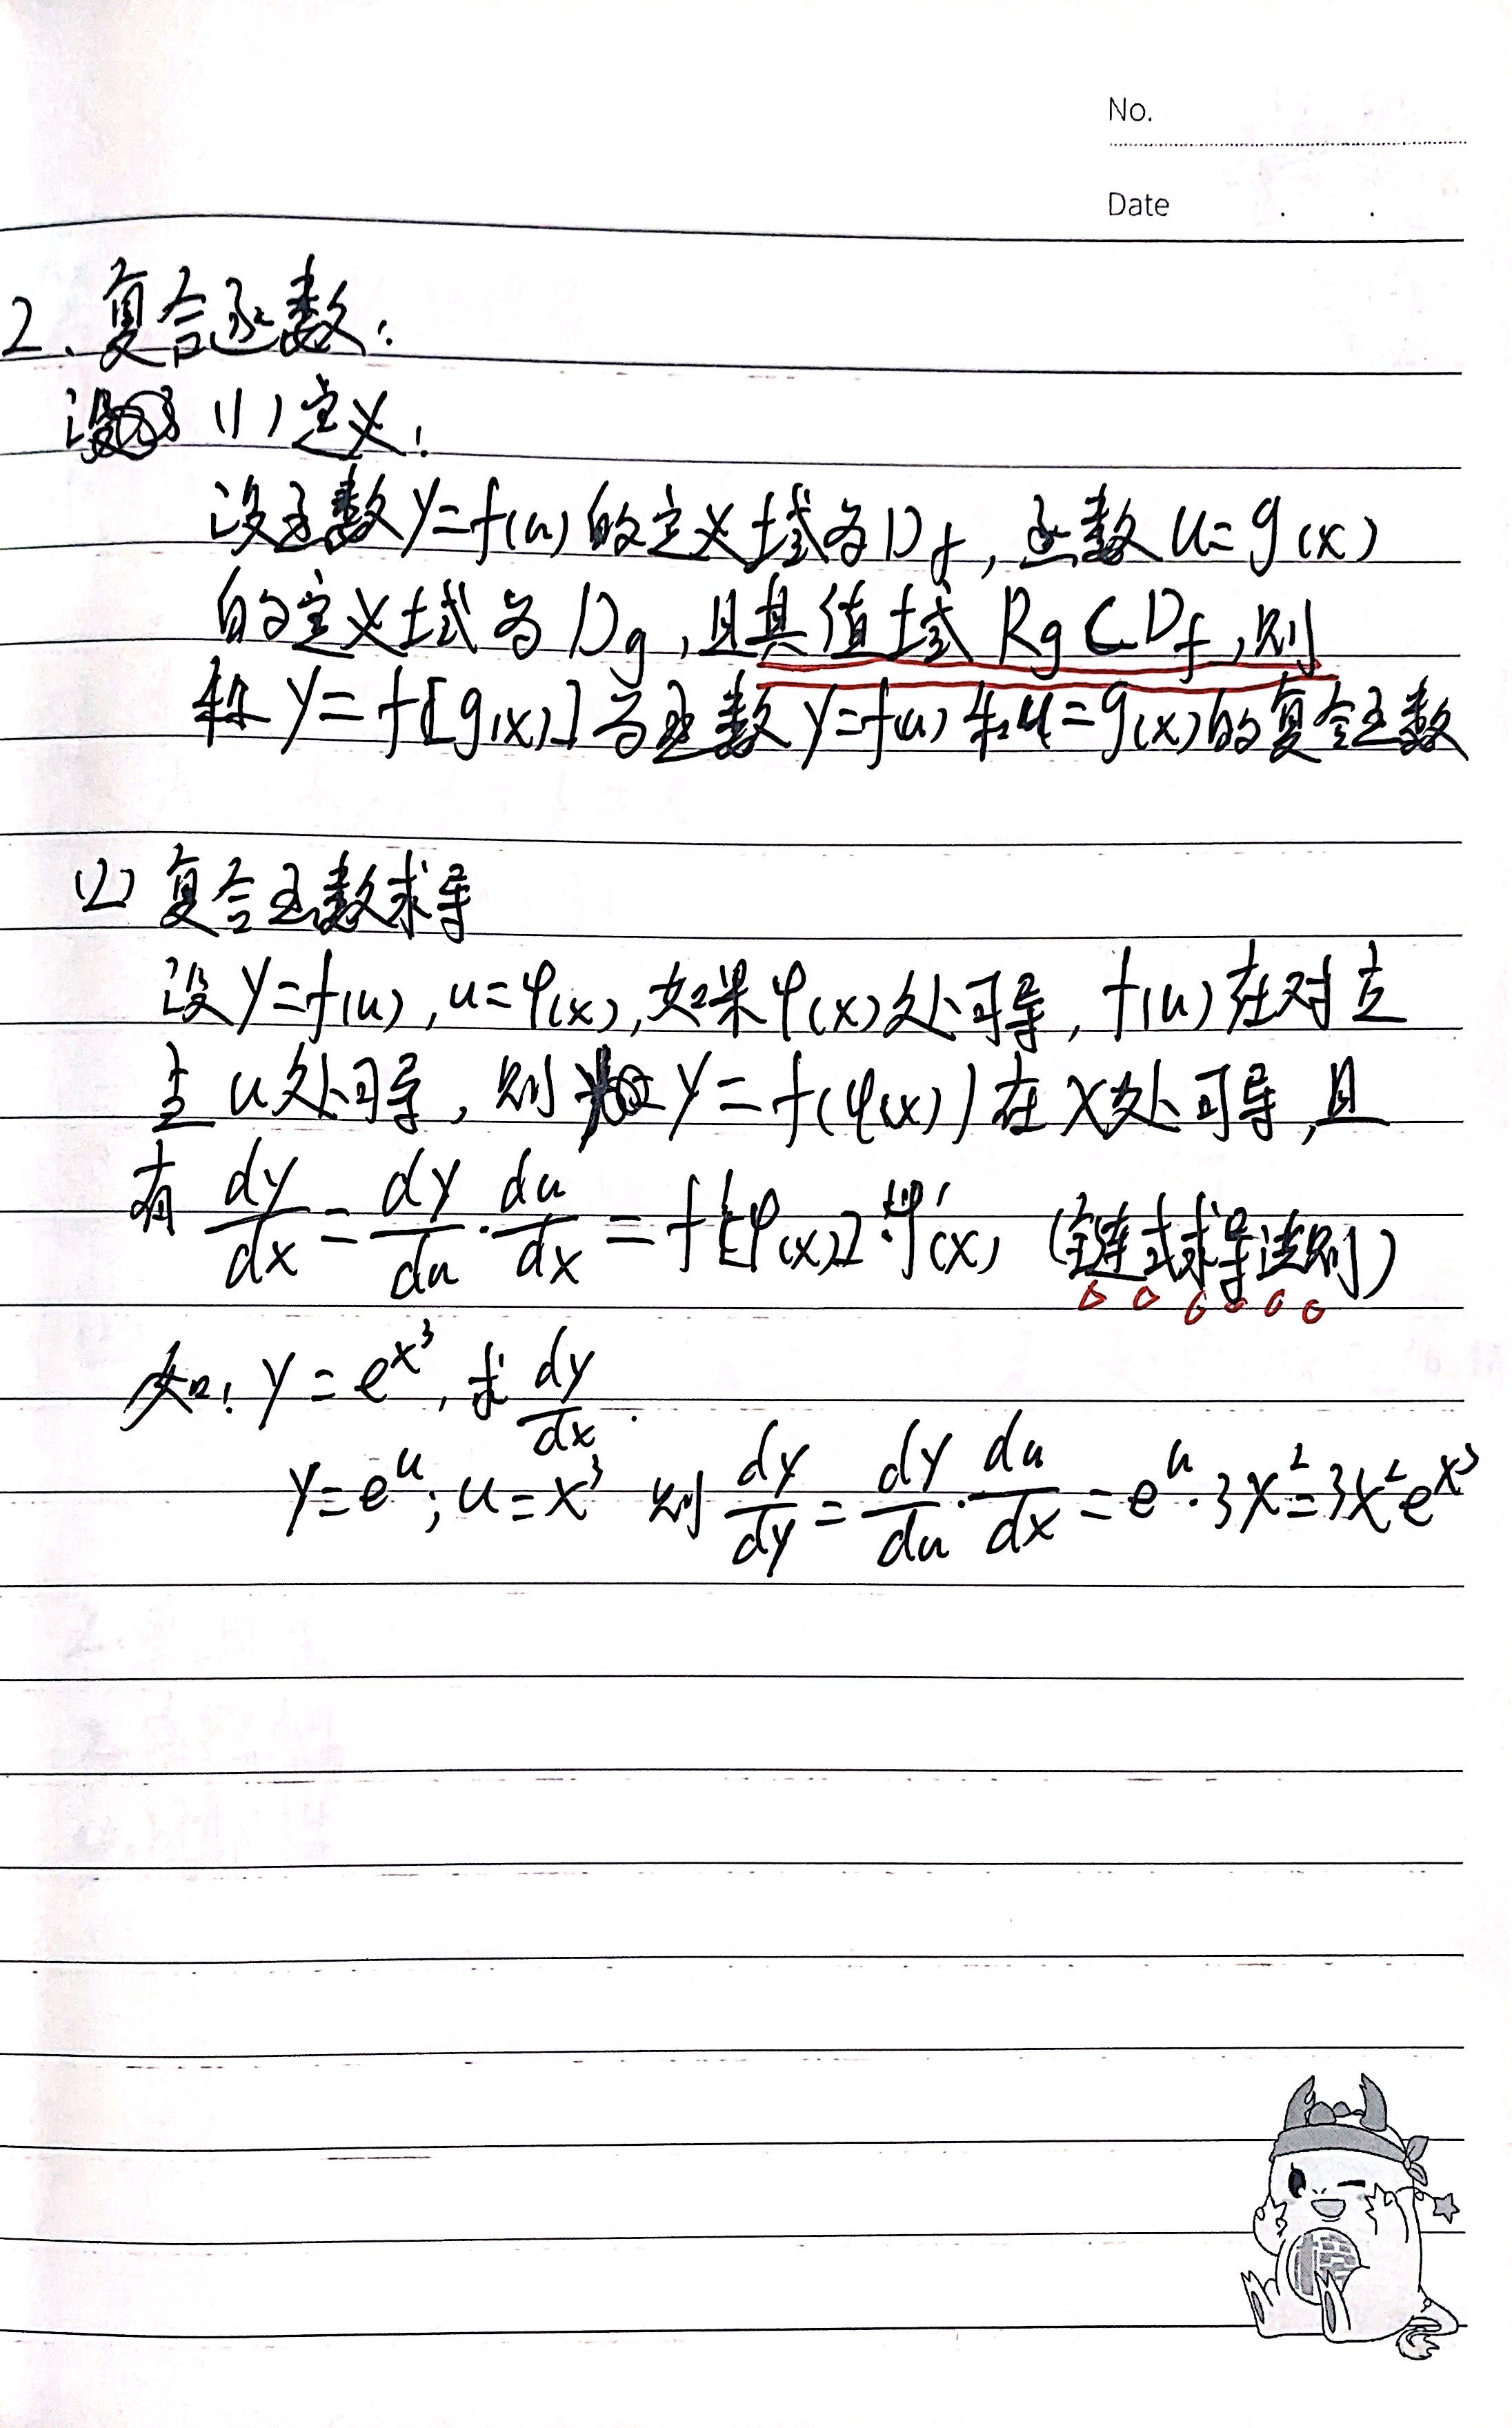 No.
Date . .
2、复合函数:
(1)定义:
设函数y=f(u)的定义域为D_f,函数u=g(x)
的定义域为D_g,且其值域 R_g⊂D_f,则
称y=f[g(x)]为函数y=f(u)和u=g(x)的复合函数
(2)复合函数求导
设y=f(u),u=φ(x),如果φ(x)处可导,f(u)在对应
u处可导,则y=f(φ(x))在x处可导,且
有 dy/dx=dy/du·du/dx=f'[φ(x)]·φ'(x) (链式求导法则)
如:y=e^{x^3},求dy/dx.
y=e^u;u=x^3 则 dy/dy=dy/du·du/dx=e^u·3x^2=3x^2e^{x^3}